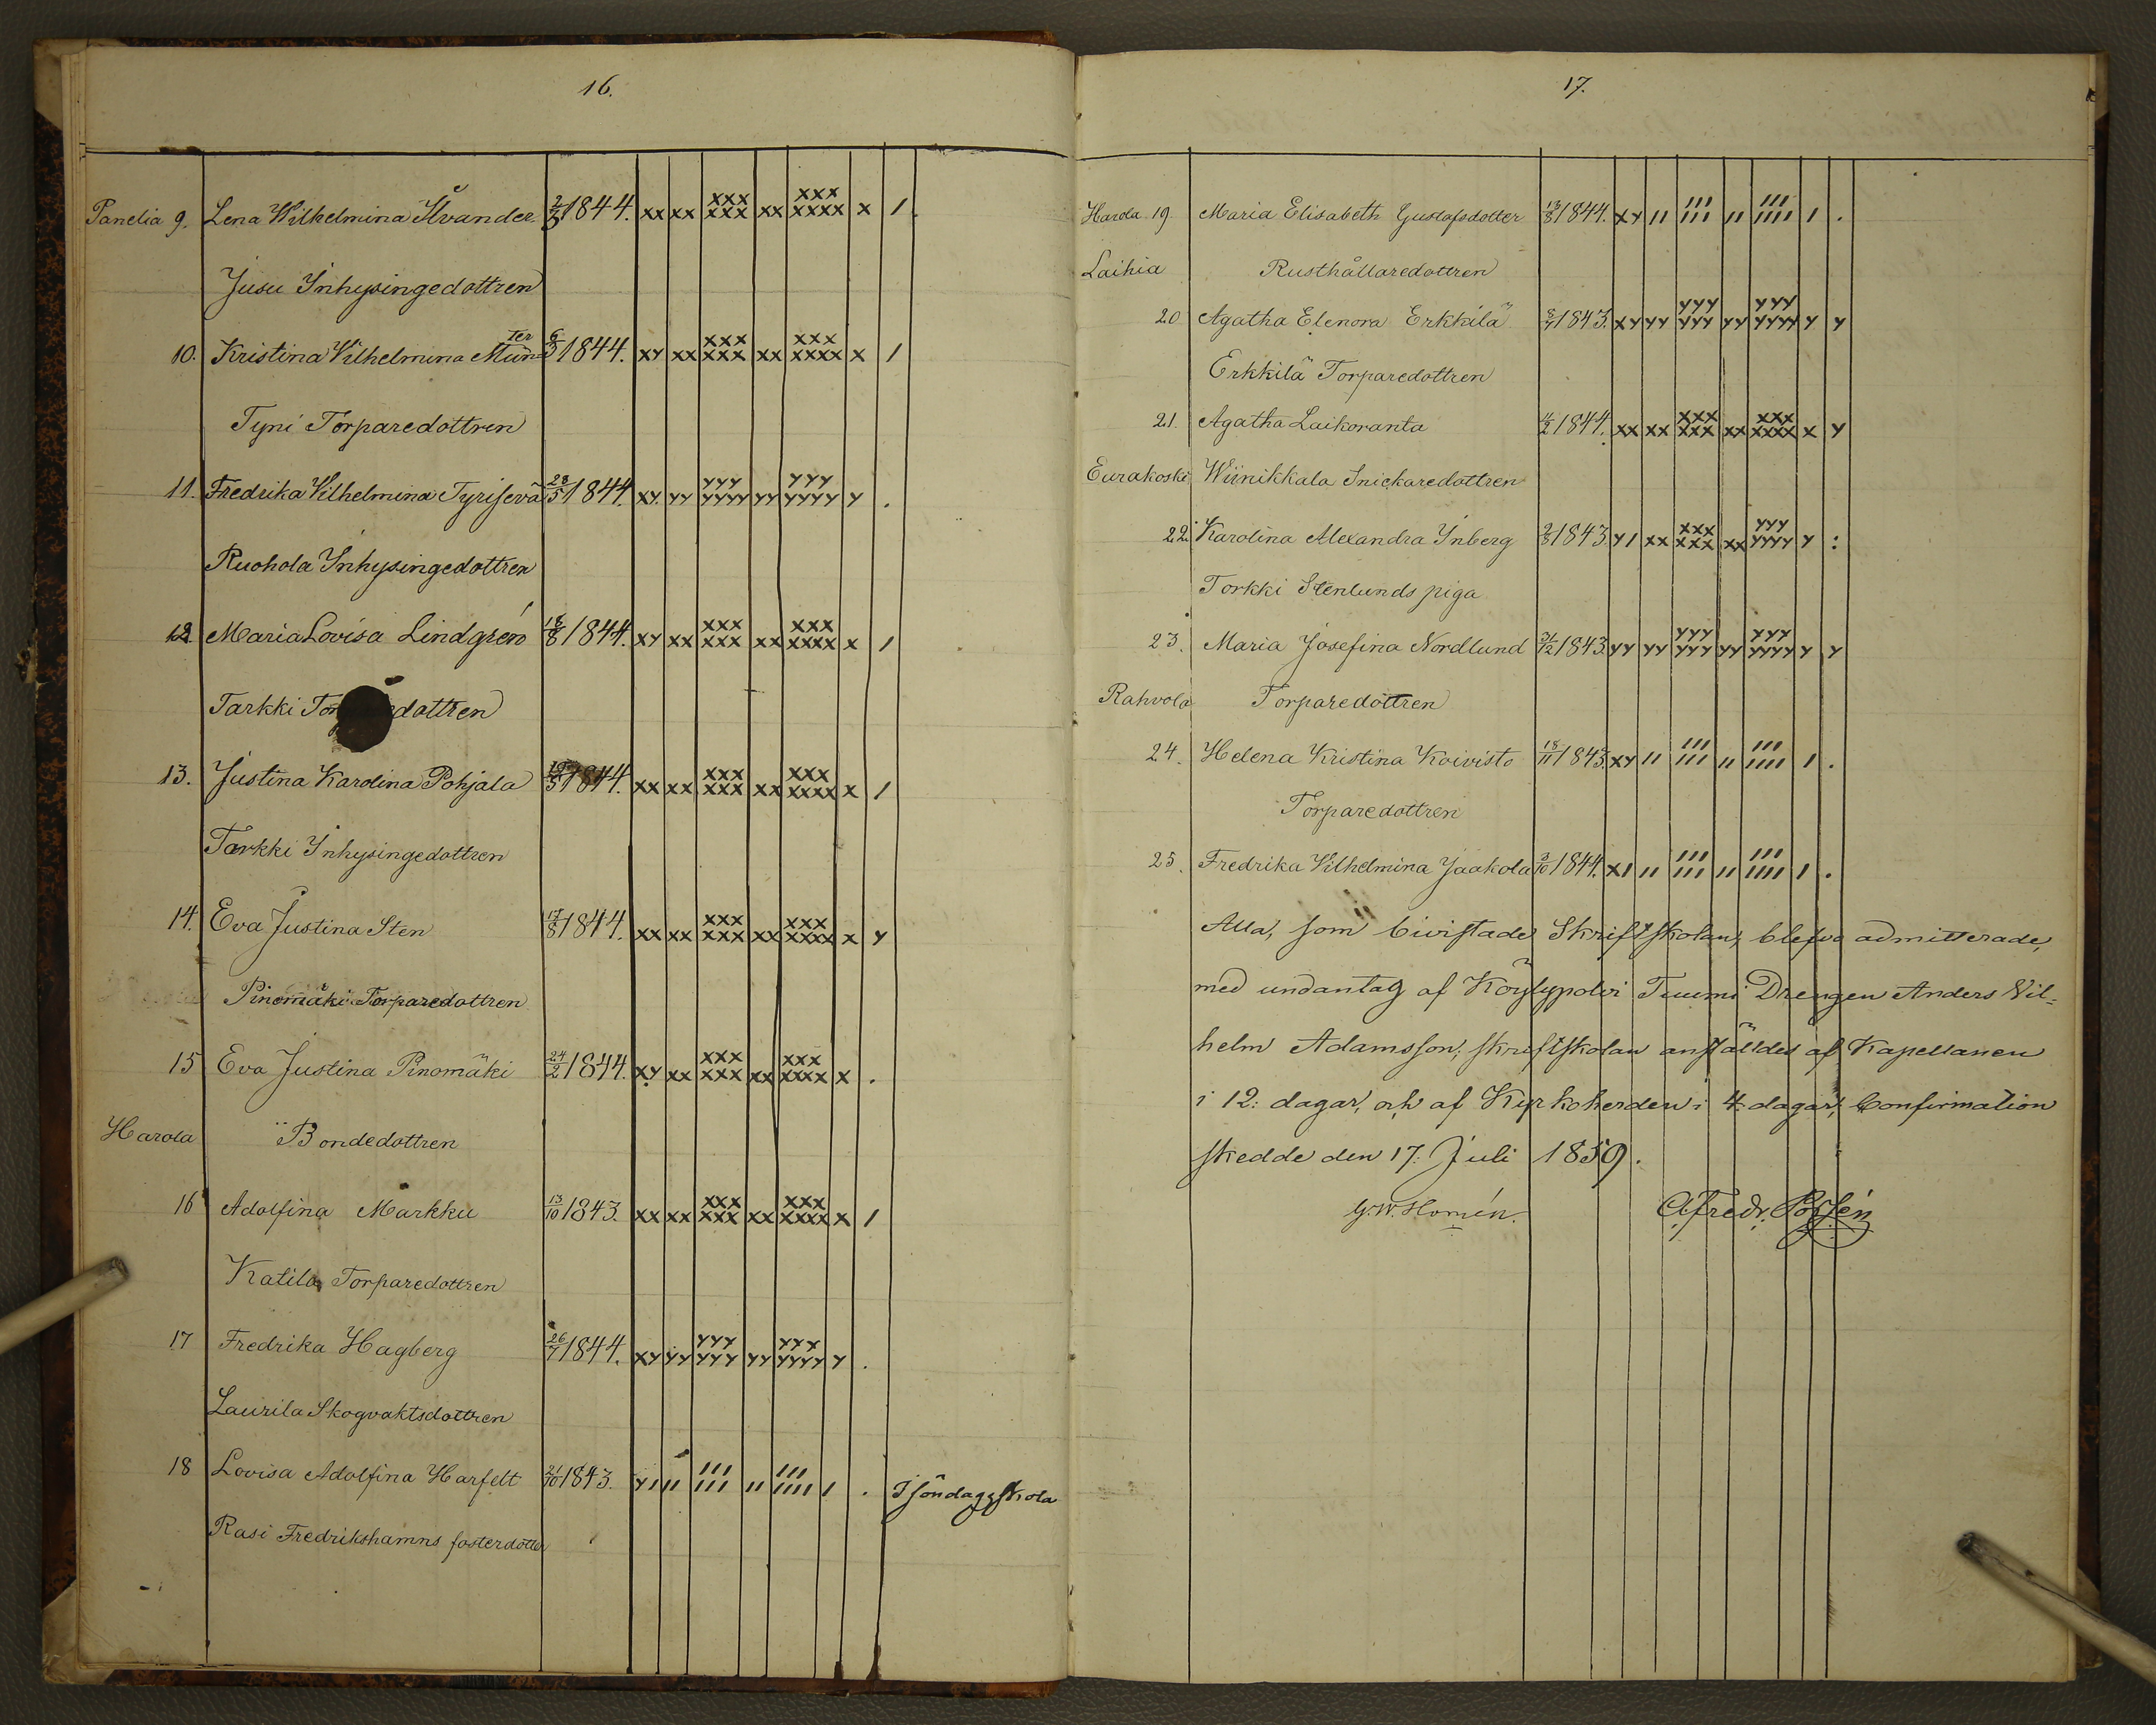 16.
Panelia 9. Lena Wilhelmina Åvander 2/3 1844. xx xx xxx xxx xx xxx xxxx x /.
Jusu Inhysingedottren
10. Kristina Vilhelmina Münster 6/3 1844. xy xx xxx xxx xx xxx xxxx x /
Tyni Torparedottren
11. Fredrika Vilhelmina 28/5 1844. xy. yy yyy yyyy yy yyy yyyy y .
Ruohola Inhysingedottren
12. Maria Lovisa Lindgrén 18/8 1844. xy xx xxx xxx xx xxx xxxx x /
Tarkki dottren
13. Justina Karolina Pohjala 1844. xx xx xxx xxx xx xxx xxxx x /
Tarkki Inhysingedottren
14. Eva Justina Sten 17/8 1844. xx xx xxx xxx xx xxx xxxx x y
Pinomäki Torparedottren
15 Eva Justina Pinomäki 24/2 1844. xy xx xxx xxx xx xxx xxxx x .
Harola Bondedottren
16 Adolfina Markku 13/10 1843. xx xx xxx xxx xx xxx xxxx x /
Katila Torparedottren
17 Fredrika Hagberg 26/7 1844. xy yy yyy yyy yy yyy yyyy y .
Laurila Skogvaktsdottren
18 Lovisa Adolfina Harfelt 21/10 1843. y/ // /// /// // /// //// / . I söndagsskola
Rasi Fredrikshamns fosterdotter
17.
Harola 19 Maria Elisabeth Gustafsdotter 13/8 1844. xy // /// /// // /// //// / .
Laihia Rusthållaredottren
20 Agatha Elenora Erkkilä 8/7 1843. xy yy yyy yyy yy yyy yyyy y y
Erkkilä Torparedottren
21. Agatha Laikoranta 4/2 1844. xx xx xxx xxx xx xxx xxxx x y
Eurakoski Wiinikkala Snickaredottren
22. Karolina Alexandra Inberg 2/8 1843. y/ xx xxx xxx xx yyy yyyy y :
Torkki Stenlunds piga
23. Maria Josefina Nordlund 31/12 1843 yy yy yyy yyy yy yyy yyyy y y
Rahvola Torparedottren
24. Helena Kristina Koivisto 18/11 1843. xy // /// /// // /// //// / .
Torparedottren
25. Fredrika Vilhelmina Jaakola 3/10 1844. x/ // /// /// // /// //// / .
Alla, som bivistade Skriftskolan, blefvo admitterade,
med undantag af Köylypolvi Tuumi Drengen Anders Vil=
helm Adamsson; skriftskolan anställdes af Kapellanen
i 12: dagar, och af Kyrkoherden i 4: dagar; Confirmation
skedde den 17: Juli 1859.
G. W. Homén. C. Fredr. Borsén